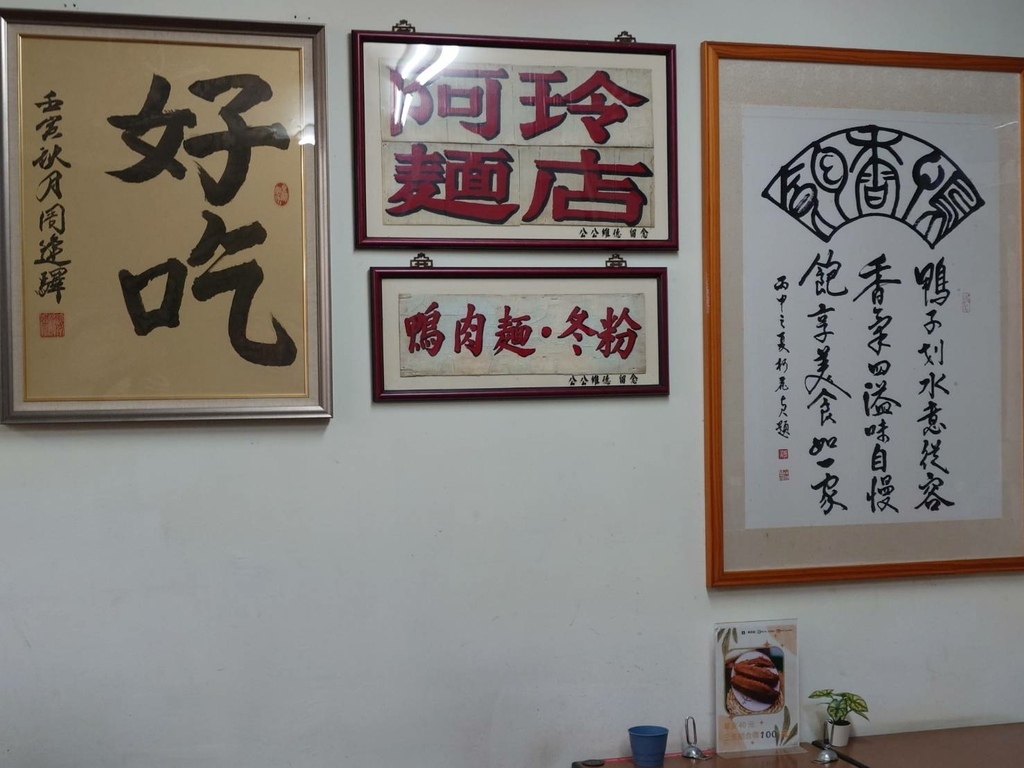 好吃
壬寅秋月周逢驛
阿玲
麵店
公公維德 留念
鴨肉麵·冬粉
公公維德 留念
鴨香寶
鴨子划水意從容
香氣四溢味自慢
飽享美食如一家
丙申之夏
100